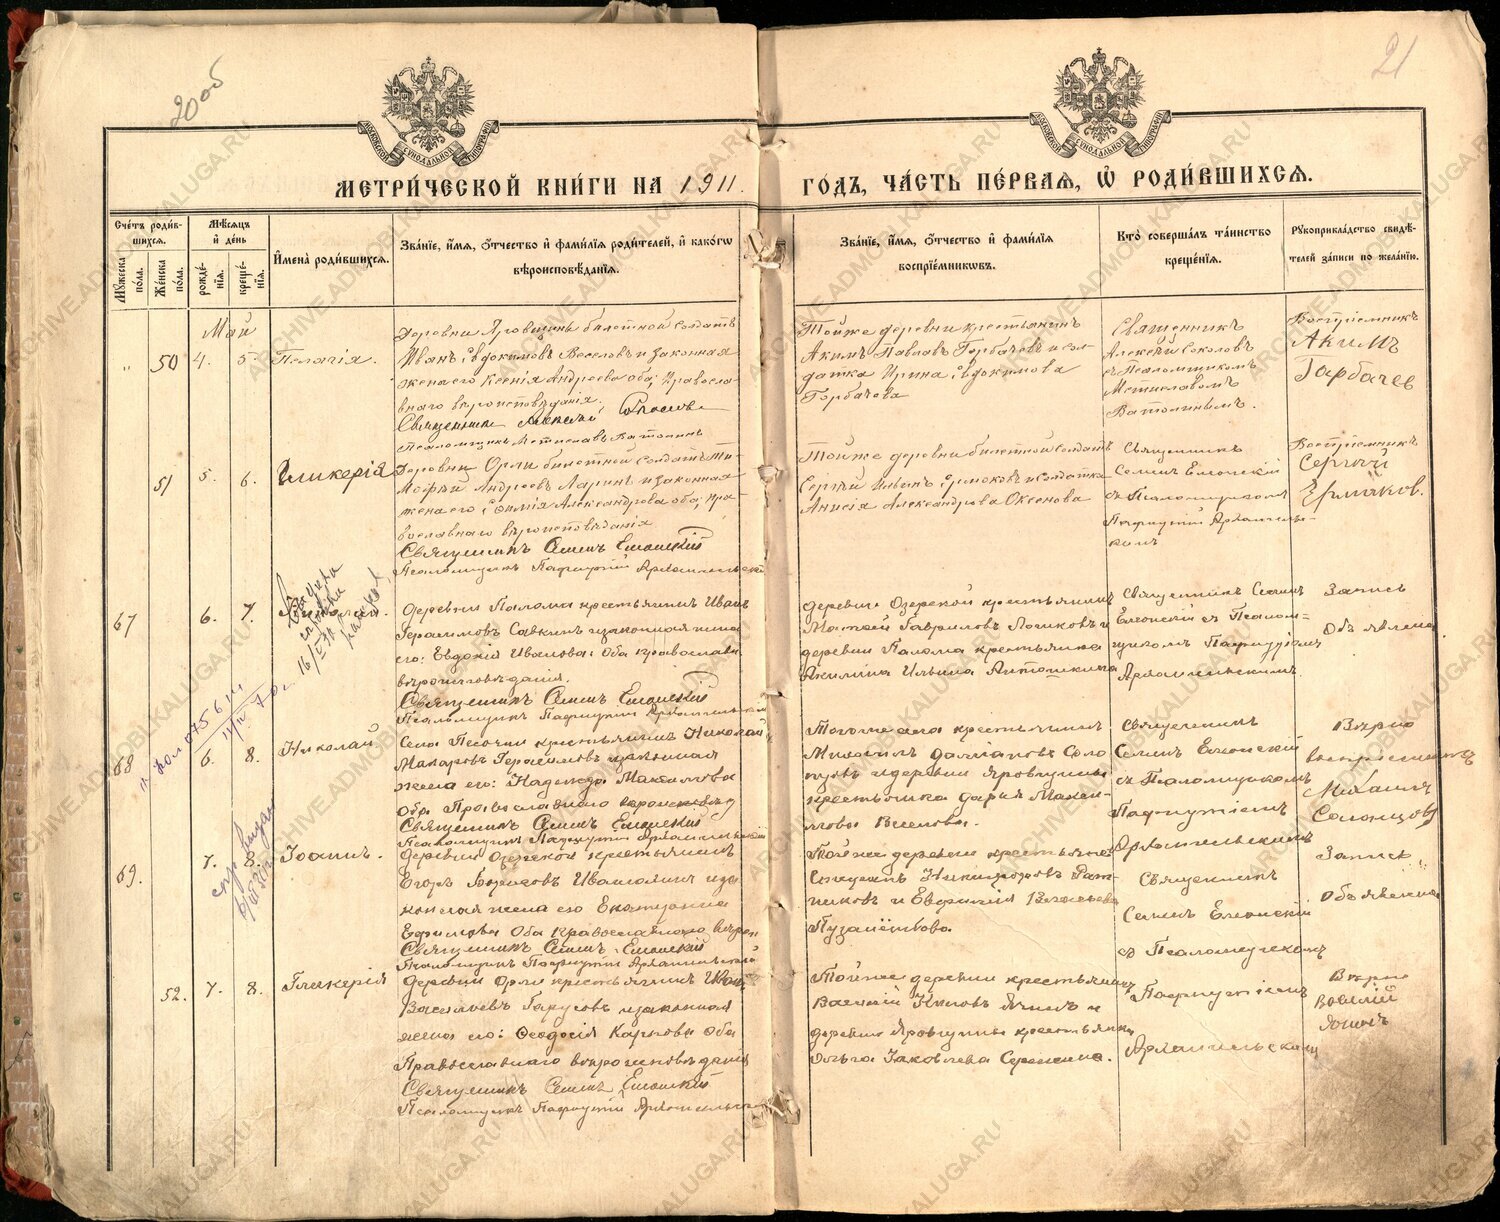 20 об
21
МЕТРИ́ЧЕСКОЙ КНИ́ГИ НА 1911. ГО́ДЪ, ЧА́СТЬ ПЕ́РВАѦ, Ѡ҆ РОДИ́ВШИХСѦ.
Сче́тъ роди́вшихсѧ.
Мꙋ́жеска по́ла.
Же́нска по́ла.
Мѣ́сѧцъ и҆ де́нь
рожде́нїѧ.
креще́нїѧ.
И҆мена̀ роди́вшихсѧ.
Зва́нїе, и҆́мѧ, ѻ҆́тчество и҆ фами́лїѧ роди́телей, и҆ како́гѡ вѣроисповѣ́данїѧ.
Зва́нїе, и҆́мѧ, ѻ҆́тчество и҆ фами́лїѧ воспрїе́мникѡвъ.
Кто̀ соверша́лъ та́инство креще́нїѧ.
Рꙋкоприкла́дство свидѣ́телей за́писи по жела́нїю.
Май
„ 50 4. 5. Пелагія.
Деревни Яровщины билетной солдатъ
Иванъ Евдокимовъ Веселовъ и законная
жена его Ксенія Андреева оба, Правосла-
внаго вѣроисповѣданія.
Священникъ Алексѣй Соколовъ
Псаломщикъ Мстиславъ Ватолинъ
Той же деревни крестьянинъ
Акимъ Павловъ Горбачевъ и сол-
датка Ирина Евдокимова
Горбачева
Священникъ
Алексѣй Соколовъ
съ Псаломщикомъ
Мстиславомъ
Ватолинымъ.
Воспріемникъ
Акимъ
Горбачев
51 5. 6. Гликерія
Деревни Орли билетной солдатъ Ти-
мофѣй Андреевъ Ларинъ и законная
жена его Евфимія Александрова оба, пра-
вославнаго вѣроисповѣданія
Священникъ Семенъ Елионскій
Псаломщикъ Пафнутій Архангельскій
Той же деревни билетной солдатъ
Сергѣй Ильинъ Ермаковъ и солдатка
Анисія Александрова Оксенова
Священникъ
Семенъ Елионскій
съ Псаломщикомъ
Пафнутій Архангельс-
кимъ
Воспріемникъ
Сергѣй
Ермаков.
67 6. 7.
Деревни Палома крестьянинъ Иванъ
Герасимовъ Савкинъ и законная жена
его: Евдокія Иванова: Оба православн.
вѣроисповѣданія.
Священникъ Семенъ Елионскій
Псаломщикъ Пафнутій Архангельскій
деревни Озерской крестьянинъ
Матвей Гавриловъ Логиковъ и
деревни Палома крестьянка
Акилина Ильина Антошкина
Священникъ Семенъ
Елионскій съ Псалом-
щикомъ Пафнутіемъ
Архангельскимъ.
Запись
Объявлена
68 6. 8. Николай
Села Песочни крестьянинъ Николай
Макаровъ Герасимовъ и законная
жена его: Надежда Максимова
Оба Православнаго вѣроисповѣд
Священникъ Семенъ Елионскій
Псаломщикъ Пафнутій Архангельскій
Того же села крестьянинъ
Михаилъ
и деревни Яровщины
крестьянка Дарія Макси-
мова Веселова.
Священникъ
Семенъ Елионскій
съ Псаломщикомъ
Пафнутіемъ
Архангельскимъ
Вѣрно
Михаилъ
69. 7. 8. Іоаннъ.
Деревни Озерской крестьянинъ
Егоръ Борисовъ Ивашкинъ и за-
конная жена его Екатерина
Ефимова Оба православнаго вѣроис
Священникъ Семенъ Елионскій
Псаломщикъ Пафнутій Архангельскій
Той же деревни крестьяне
и Евфимія Васильева
Священникъ
Семенъ Елионскій
съ Псаломщикомъ
Пафнутіемъ
Архангельскимъ
Запись
Объявлена
52. 7. 8. Гликерія
Деревни Орли крестьянинъ Иванъ
Васильевъ Гарусовъ и законная
жена его: Ѳеодосія Карпова Оба
Православнаго вѣроисповѣданія
Священникъ Семенъ Елионскій
Псаломщикъ Пафнутій Архангельскій
Той же деревни крестьянинъ
Василій
деревни Яровщины крестьянка
Ольга Яковлева
Вѣрно
Василій